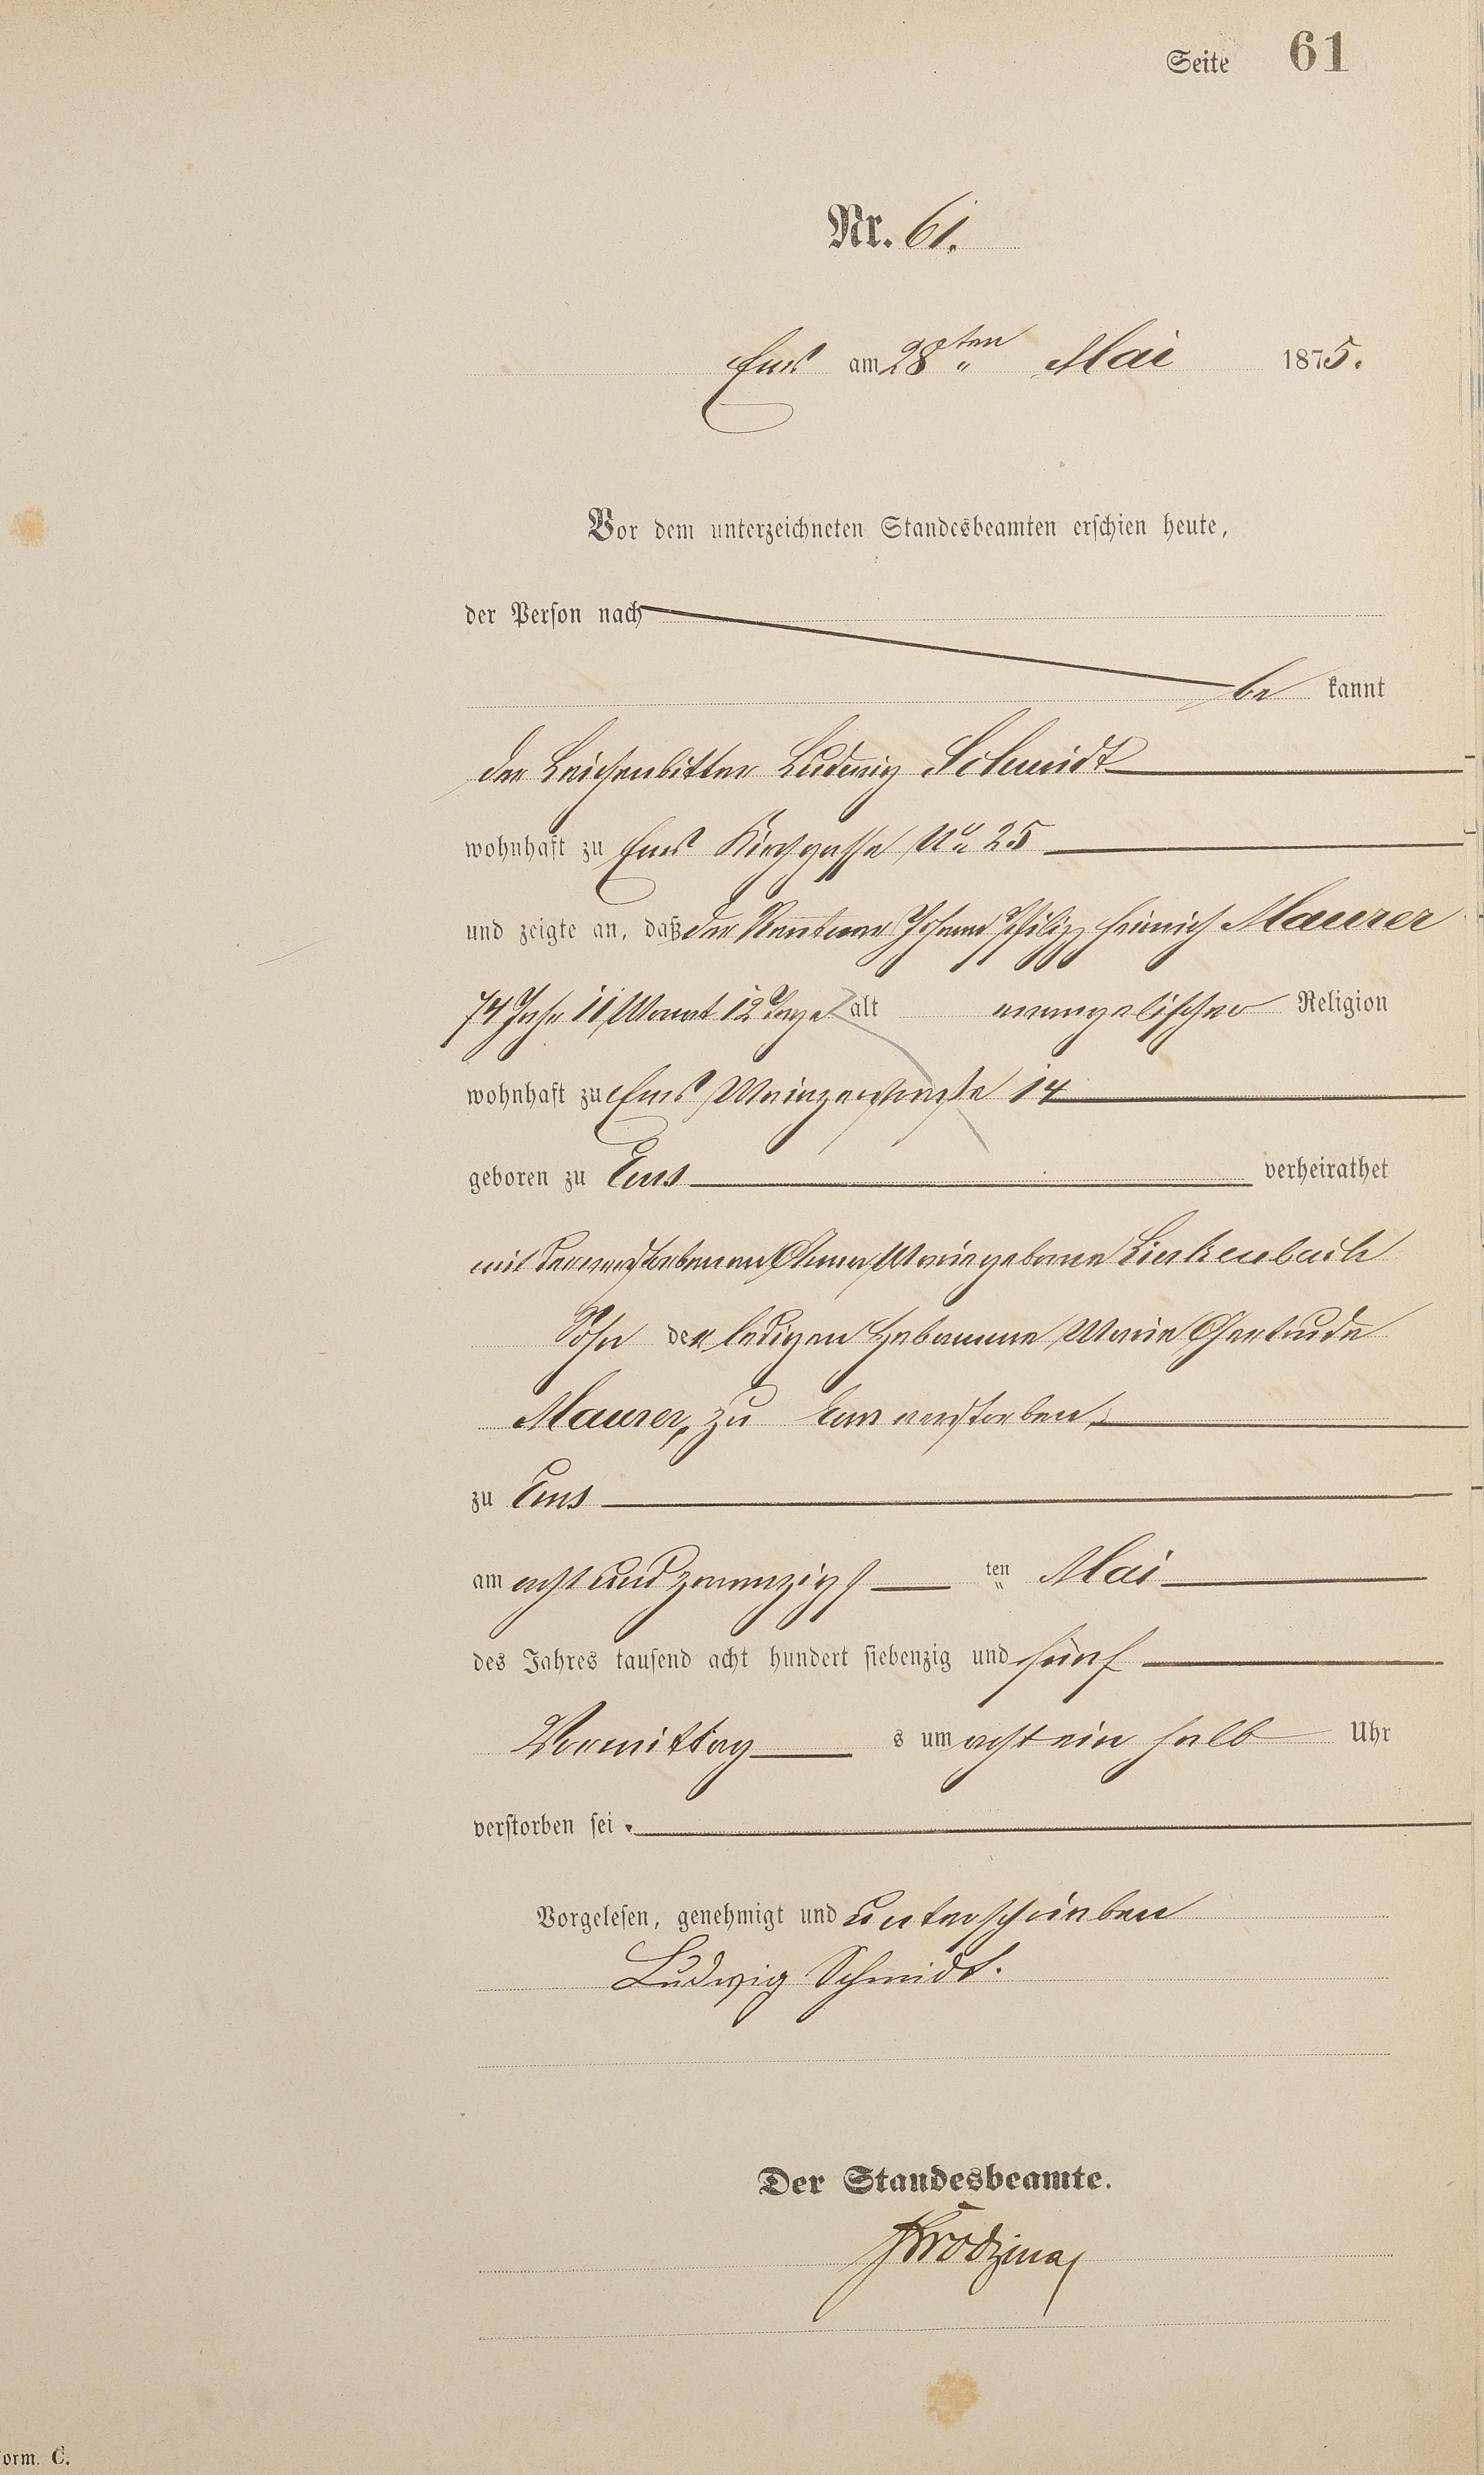 Seite 61
Nr. 61.
Ems am 28ten Mai 1875.
Vor dem unterzeichneten Standesbeamten erschien heute,
der Person nach
be kannt
der Leichenbitter Ludwig Schmidt
wohnhaft zu Ems Kirchgasse No 25
und zeigte an, daß der Rentner Johann Philipp Heinrich Maurer
74 Jahr 11 Monat 12 Tage alt evangelischer Religion
wohnhaft zu Ems Mainzerstraße 14
geboren zu Ems verheirathet
mit der verstorbenen Anna Marie geborne Linkenbach
Sohn der ledigen Hebamme Marie Gertrude
Maurer, zu Ems verstorben,
zu Ems
am acht und zwanzigs ten Mai
des Jahres tausend acht hundert siebenzig und fünf
Vormittag s um acht ein halb Uhr
verstorben sei.
Vorgelesen, genehmigt und unterschrieben
Ludwig Schmidt.
Der Standesbeamte.
orm. C.